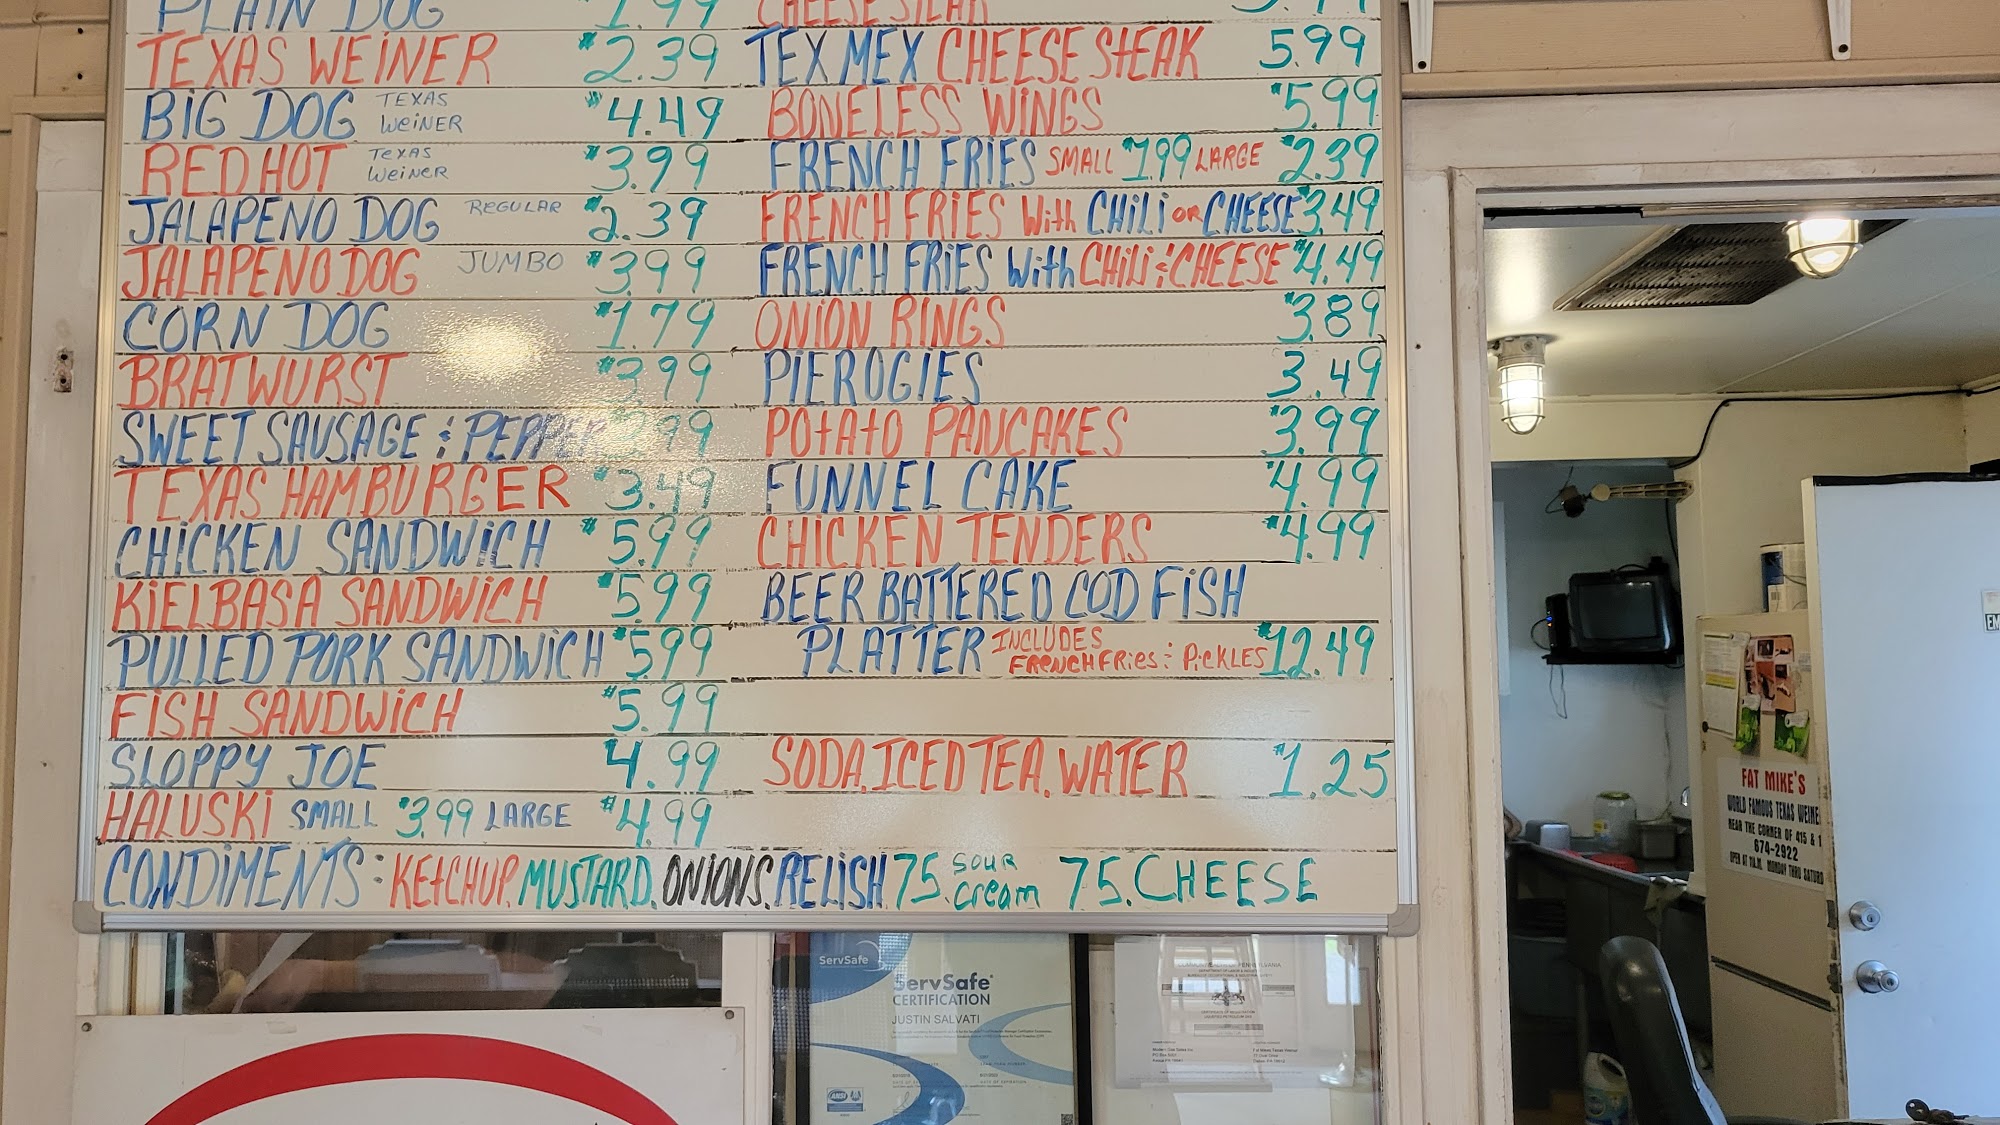 PLAIN DOG $1.99
TEXAS WEINER $2.39
BIG DOG TEXAS WEINER $4.49
RED HOT TEXAS WEINER $3.99
JALAPENO DOG REGULAR $2.39
JALAPENO DOG JUMBO $3.99
CORN DOG $1.79
BRATWURST $3.99
SWEET SAUSAGE & PEPPER 3.99
TEXAS HAMBURGER $3.49
CHICKEN SANDWICH $5.99
KIELBASA SANDWICH $5.99
PULLED PORK SANDWICH $5.99
FISH SANDWICH $5.99
SLOPPY JOE 4.99
HALUSKI SMALL $3.99 LARGE $4.99
CHEESE STEAK
TEX MEX CHEESE STEAK 5.99
BONELESS WINGS $5.99
FRENCH FRIES SMALL $1.99 LARGE $2.39
FRENCH FRIES WITH CHILI OR CHEESE $3.49
FRENCH FRIES WITH CHILI & CHEESE $4.49
ONION RINGS $3.89
PIEROGIES 3.49
POTATO PANCAKES $3.99
FUNNEL CAKE $4.99
CHICKEN TENDERS $4.99
BEER BATTERED COD FISH
PLATTER INCLUDES FRENCH FRIES & PICKLES $12.49
SODA, ICED TEA, WATER $1.25
CONDIMENTS: KETCHUP, MUSTARD, ONIONS, RELISH 75. SOUR CREAM 75. CHEESE
ServSafe
ServSafe®
CERTIFICATION
JUSTIN SALVATI
FAT MIKE'S
WORLD FAMOUS TEXAS WEINE
NEAR THE CORNER OF 415 & 1
674-2922
OPEN AT 11A.M. MONDAY THRU SATURD